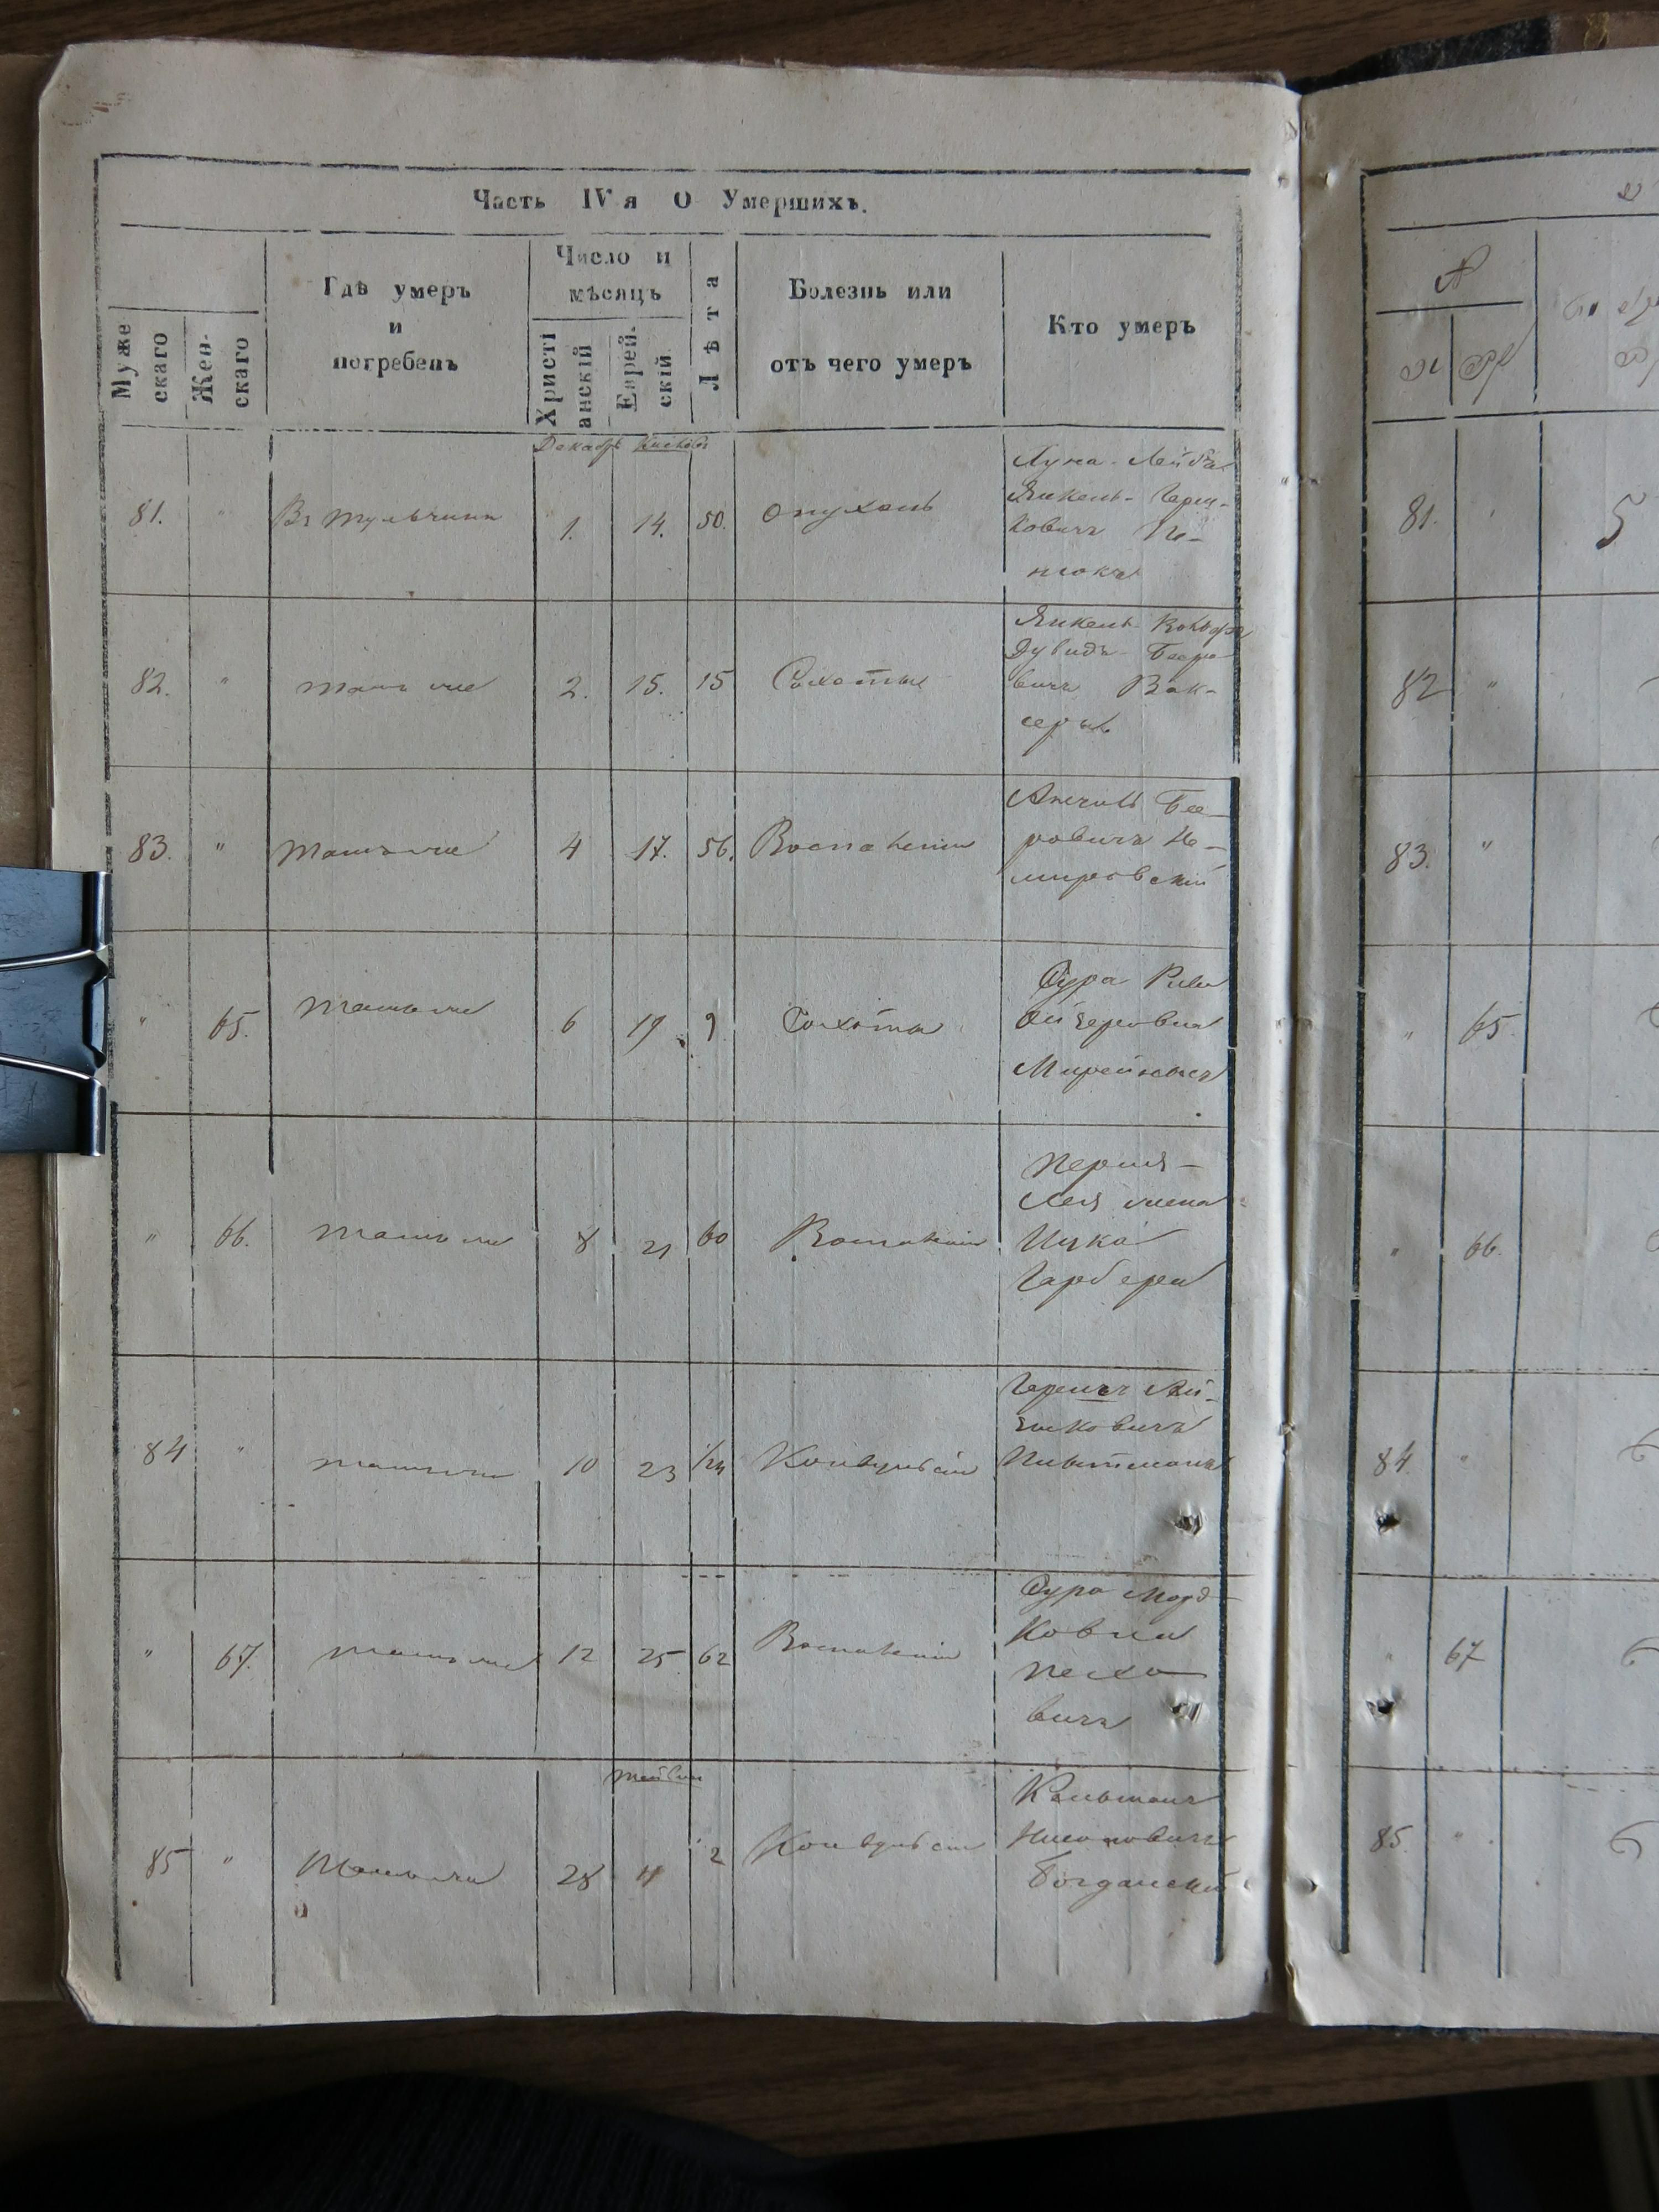 Часть IV я О Умершихъ.
Муже скаго
Жен- скаго
Где умеръ
и
погребенъ
Число и
мѣсяцъ
Христі анскій
Еврей- скій
Лѣта
Болезнь или
отъ чего умеръ
Кто умеръ
Декабрь Кислевъ
81. " Въ Тульчинѣ 1. 14. 50. Опухоль
Лейба
Янкель- Герш-
ковичъ
82. " тамъ же 2. 15. 15 Сохотые
Янкель
Дувидъ- Беро
вичъ Вак-
серъ
83. " тамъ же 4 17. 56. Воспаление
Анчиль Бе-
ровичъ Не-
мировскій
" 65. тамъ же 6 19 9 Сохота
Сура Рива
Ойзеровна
" 66. тамъ же 8 21 60 Воспаленія
Перля-
Лея жена
Ицка
Гарбера
84 " тамъ же 10 23 1/24 Конвульсіи
Гершъ Ай-
зиковичъ
" 67. тамъ же 12 25 62 Воспаленія
Сура Морд-
ковна
Песхо
вичъ
Тейвис
85 " Тамъ же 28 11 2 Конвульсіи
Кальманъ
Богданскій
81. 5
82 "
83. "
" 65.
" 66.
84. "
" 67
85. "